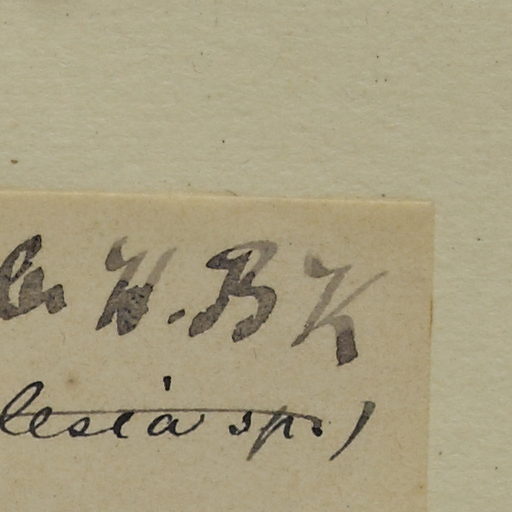 H.B K
lesia sp.)